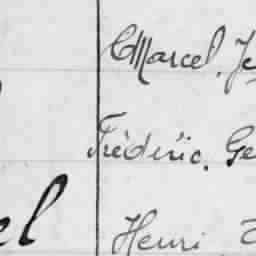 Marcel, Je
Frédéric, Ge
el Henri